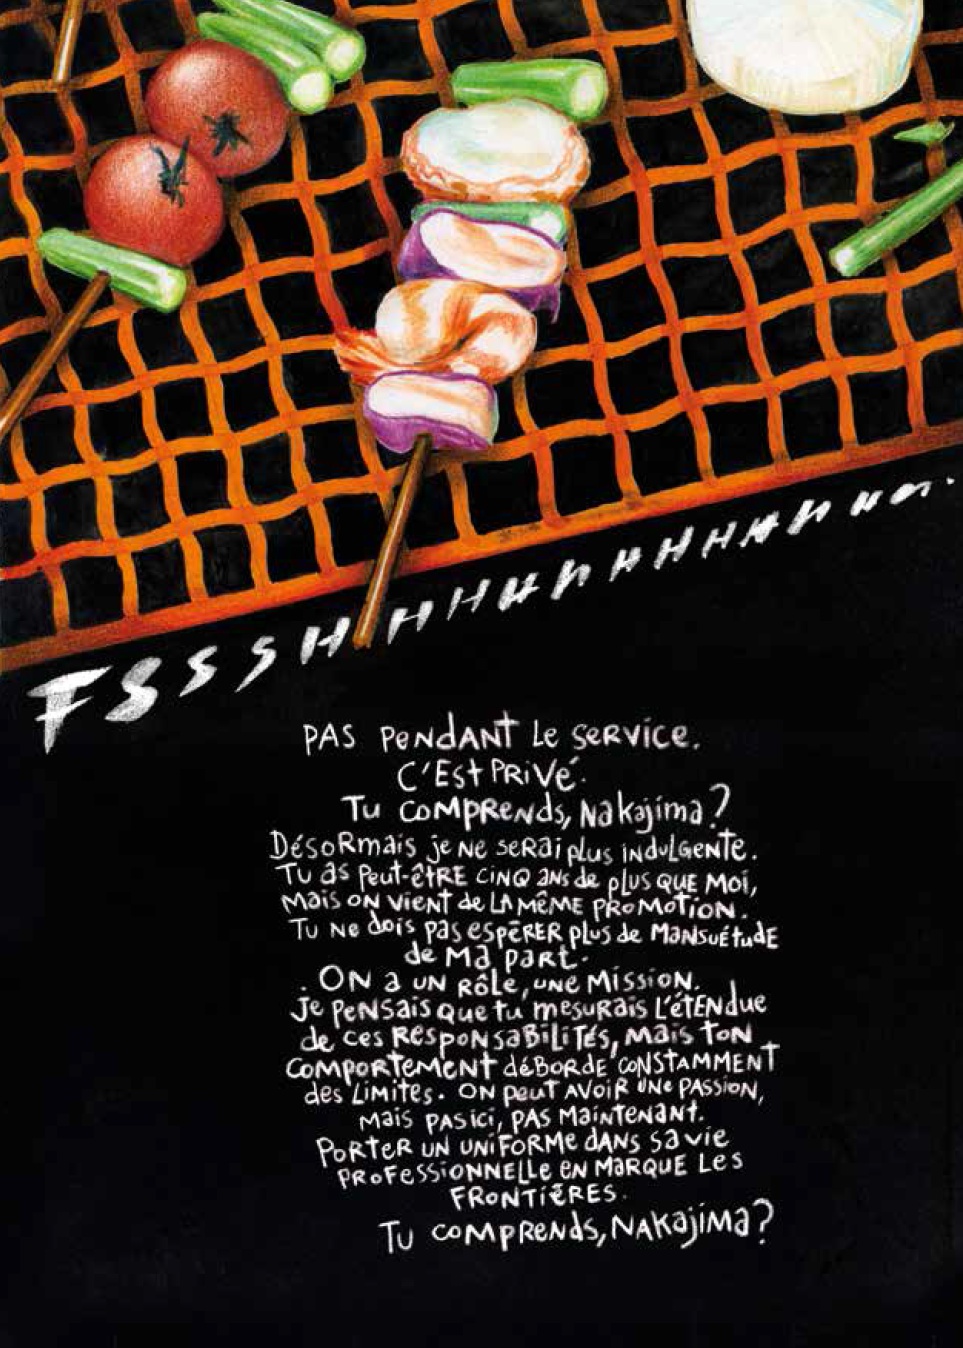 FSSSHHHHHHHHHHHHHH.
PAS PENDANT LE SERVICE.
C'EST PRIVÉ.
TU COMPRENDS, NAKAJIMA?
DÉSORMAIS JE NE SERAI PLUS INDULGENTE.
TU AS PEUT-ÊTRE CINQ ANS DE PLUS QUE MOI,
MAIS ON VIENT DE LA MÊME PROMOTION.
TU NE DOIS PAS ESPÉRER PLUS DE MANSUÉTUDE
DE MA PART.
ON A UN RÔLE, UNE MISSION.
JE PENSAIS QUE TU MESURAIS L'ÉTENDUE
DE CES RESPONSABILITÉS, MAIS TON
COMPORTEMENT DÉBORDE CONSTAMMENT
DES LIMITES. ON PEUT AVOIR UNE PASSION,
MAIS PAS ICI, PAS MAINTENANT.
PORTER UN UNIFORME DANS SA VIE
PROFESSIONNELLE EN MARQUE LES
FRONTIÈRES.
TU COMPRENDS, NAKAJIMA?